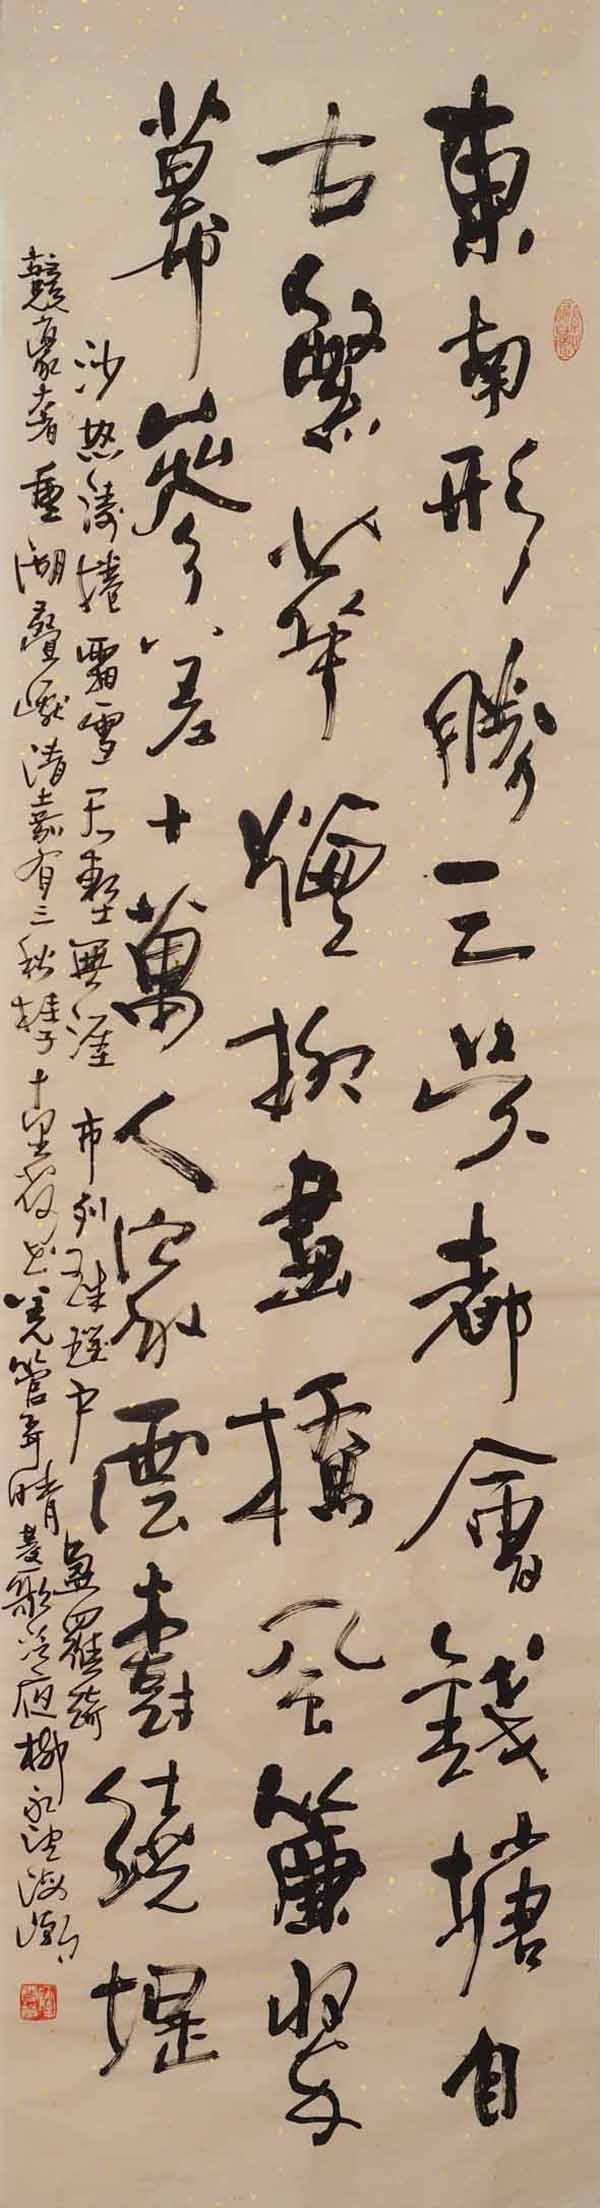 東南形勝三吳都會錢塘自
古繁華煙柳畫橋風簾翠
幕參差十萬人家雲樹繞堤
沙怒濤捲霜雪天塹無涯市列珠璣戶盈羅綺
競豪奢重湖疊巘清嘉有三秋桂子十里荷花羌管弄晴菱歌泛夜柳永望海潮